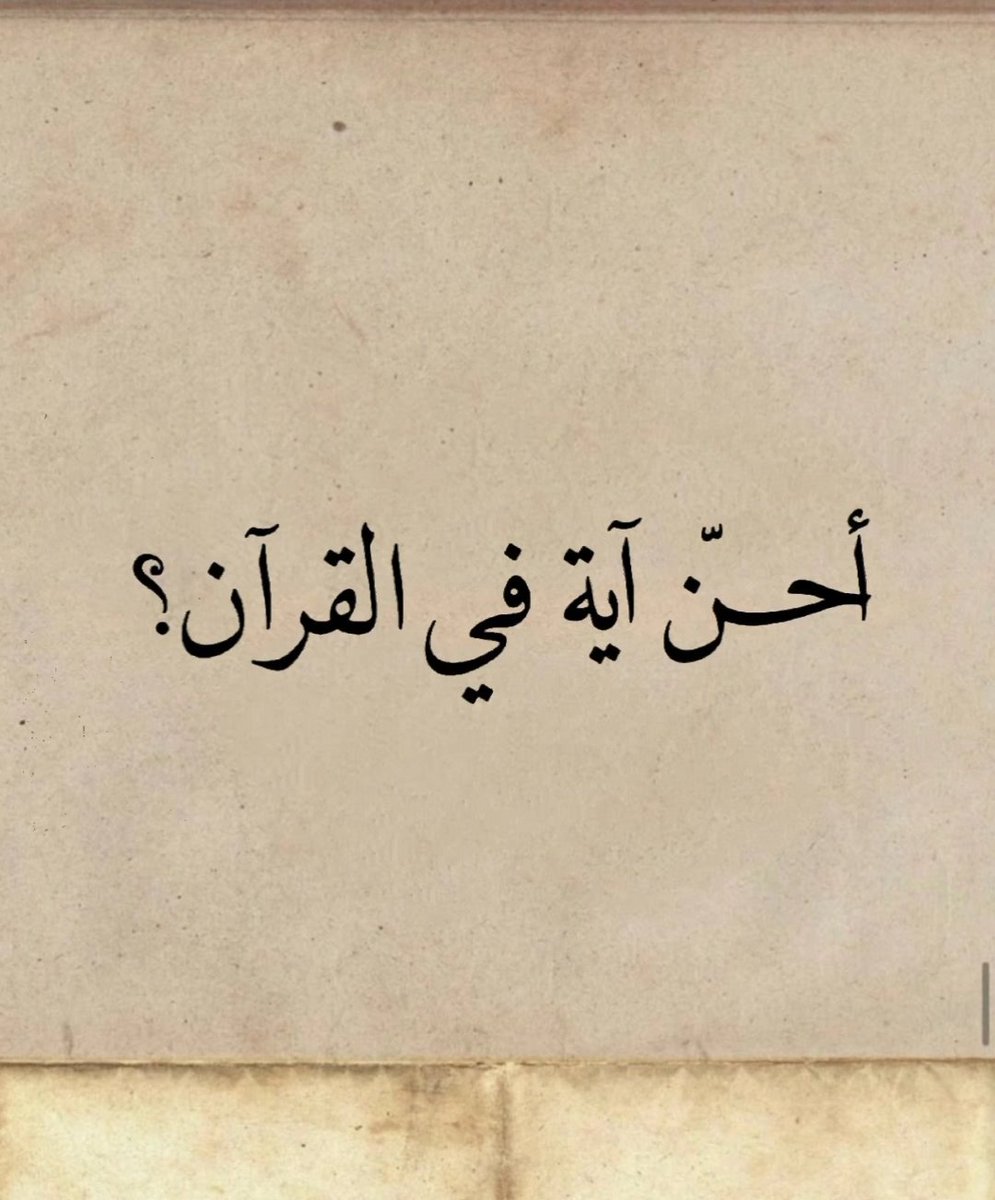 أحنّ آية في القرآن؟